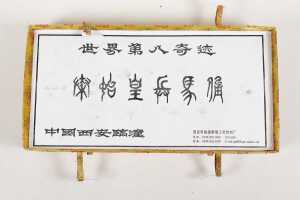 世界第八奇迹
秦始皇兵马俑
中國西安临潼